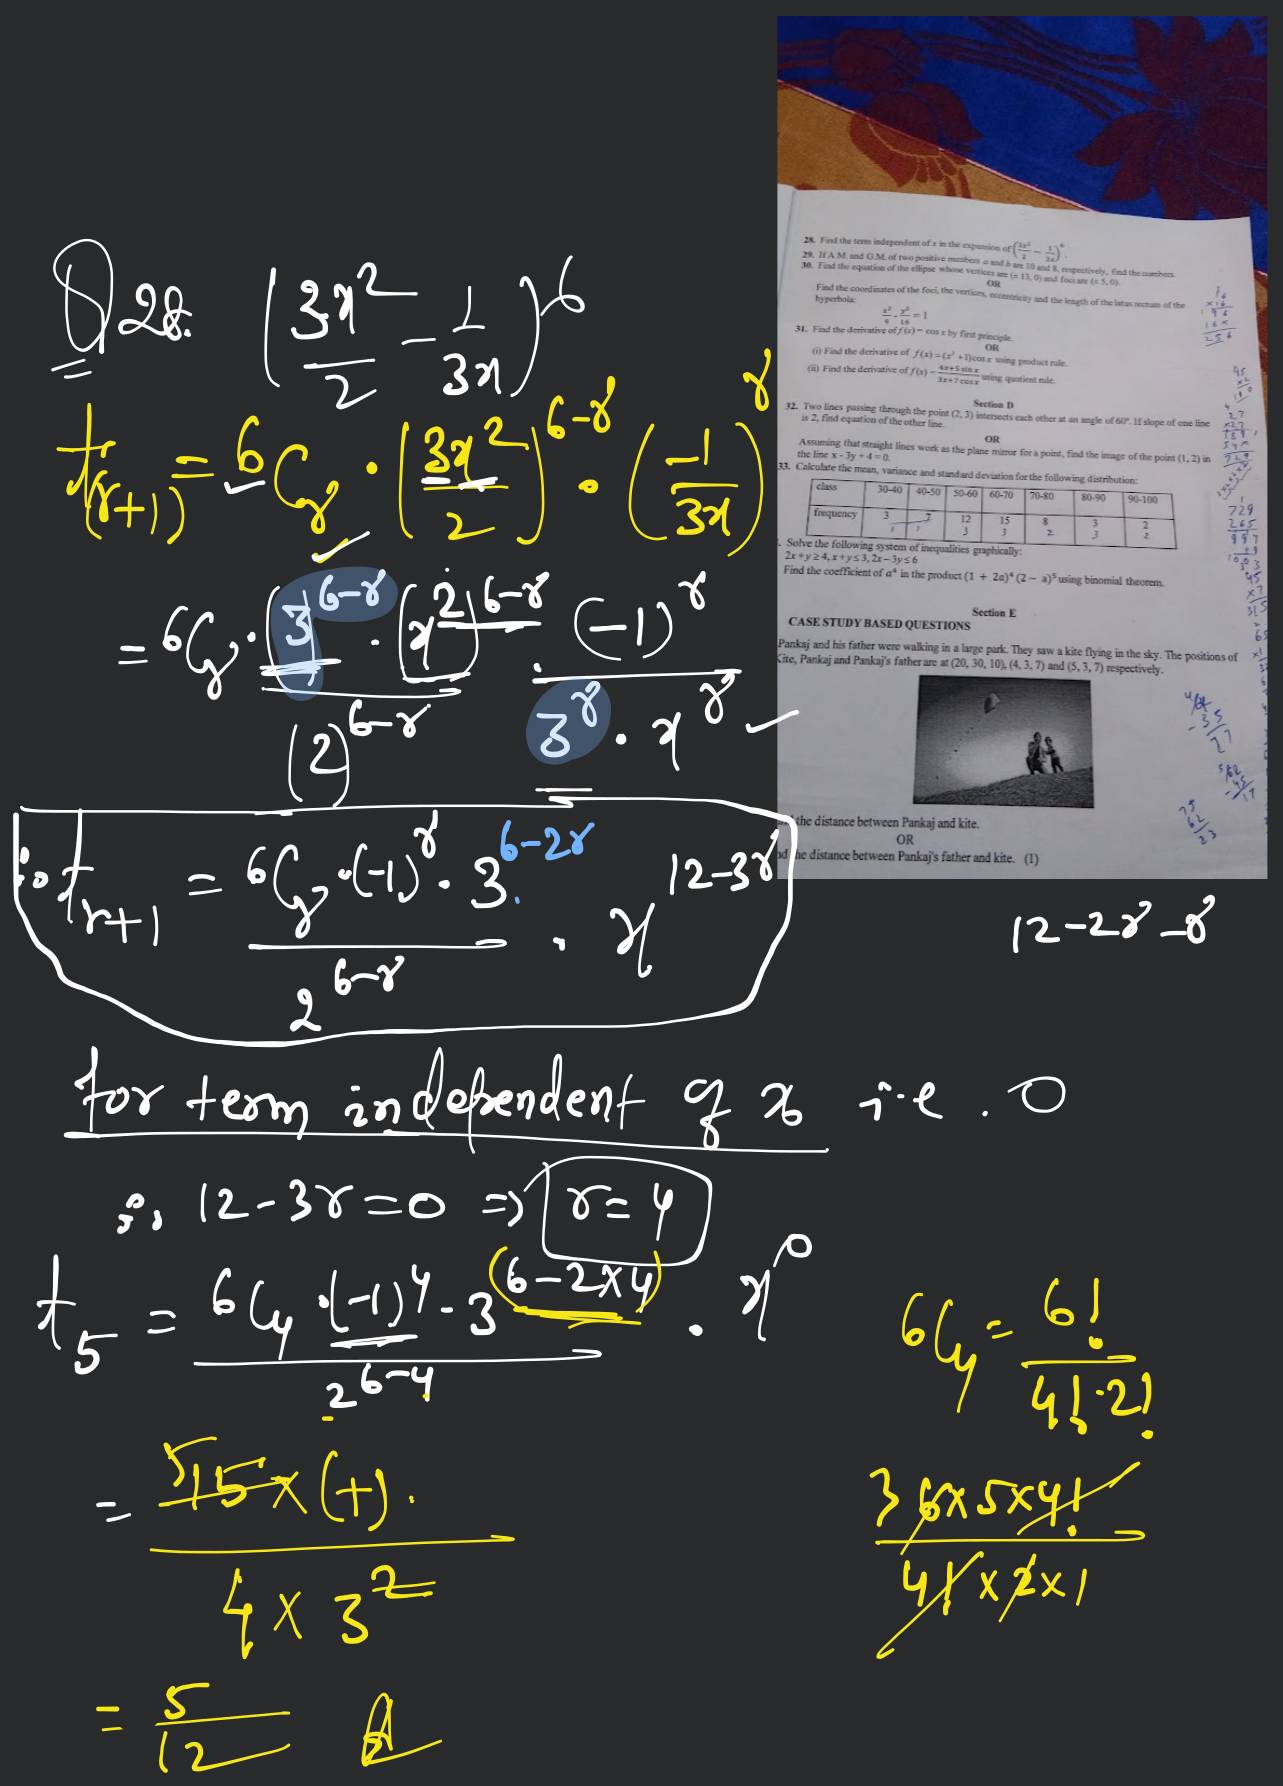 Q28. (3x²/2 - 1/3x)^6
t(r+1) = 6Cr · (3x²/2)^(6-r) · (-1/3x)^r
= 6Cr · (3)^(6-r) · (x²)^(6-r) / (2)^(6-r) · (-1)^r / 3^r · x^r
∴ t r+1 = 6Cr · (-1)^r · 3^(6-2r) / 2^(6-r) · x^(12-3r)
12-2r-r
for term independent of x i.e. 0
∴ 12-3r=0 ⇒ r=4
t5 = 6C4 · (-1)^4 · 3^(6-2×4) / 2^(6-4) · x^0
= 15 × (+) · / 4 × 3² 5
= 5/12 A
6C4 = 6! / 4!·2!
3 6×5×4! / 4!×2×1
28. Find the term independent of x in the expansion of (3x²/2 - 1/3x)^6.
29. If A.M. and G.M. of two positive numbers a and b are 10 and 8, respectively, find the numbers.
30. Find the equation of the ellipse whose vertices are (± 13, 0) and foci are (± 5, 0).
OR
Find the coordinates of the foci, the vertices, eccentricity and the length of the latus rectum of the
hyperbola:
x²/9 - y²/16 = 1
31. Find the derivative of f(x) = cos x by first principle.
OR
(i) Find the derivative of f(x) = (x² +1)cos x using product rule.
(ii) Find the derivative of f(x) = 4x+5 sin x / 3x+7 cos x using quotient rule.
Section D
32. Two lines passing through the point (2, 3) intersects each other at an angle of 60°. If slope of one line
is 2, find equation of the other line.
OR
Assuming that straight lines work as the plane mirror for a point, find the image of the point (1, 2) in
the line x - 3y + 4 = 0.
33. Calculate the mean, variance and standard deviation for the following distribution:
class 30-40 40-50 50-60 60-70 70-80 80-90 90-100
frequency 3 7 12 15 8 3 2
. Solve the following system of inequalities graphically:
2x + y ≥ 4, x + y ≤ 3, 2x - 3y ≤ 6
Find the coefficient of a⁴ in the product (1 + 2a)⁴ (2 – a)⁵ using binomial theorem.
Section E
CASE STUDY BASED QUESTIONS
Pankaj and his father were walking in a large park. They saw a kite flying in the sky. The positions of
Kite, Pankaj and Pankaj's father are at (20, 30, 10), (4, 3, 7) and (5, 3, 7) respectively.
the distance between Pankaj and kite.
OR
he distance between Pankaj's father and kite. (1)